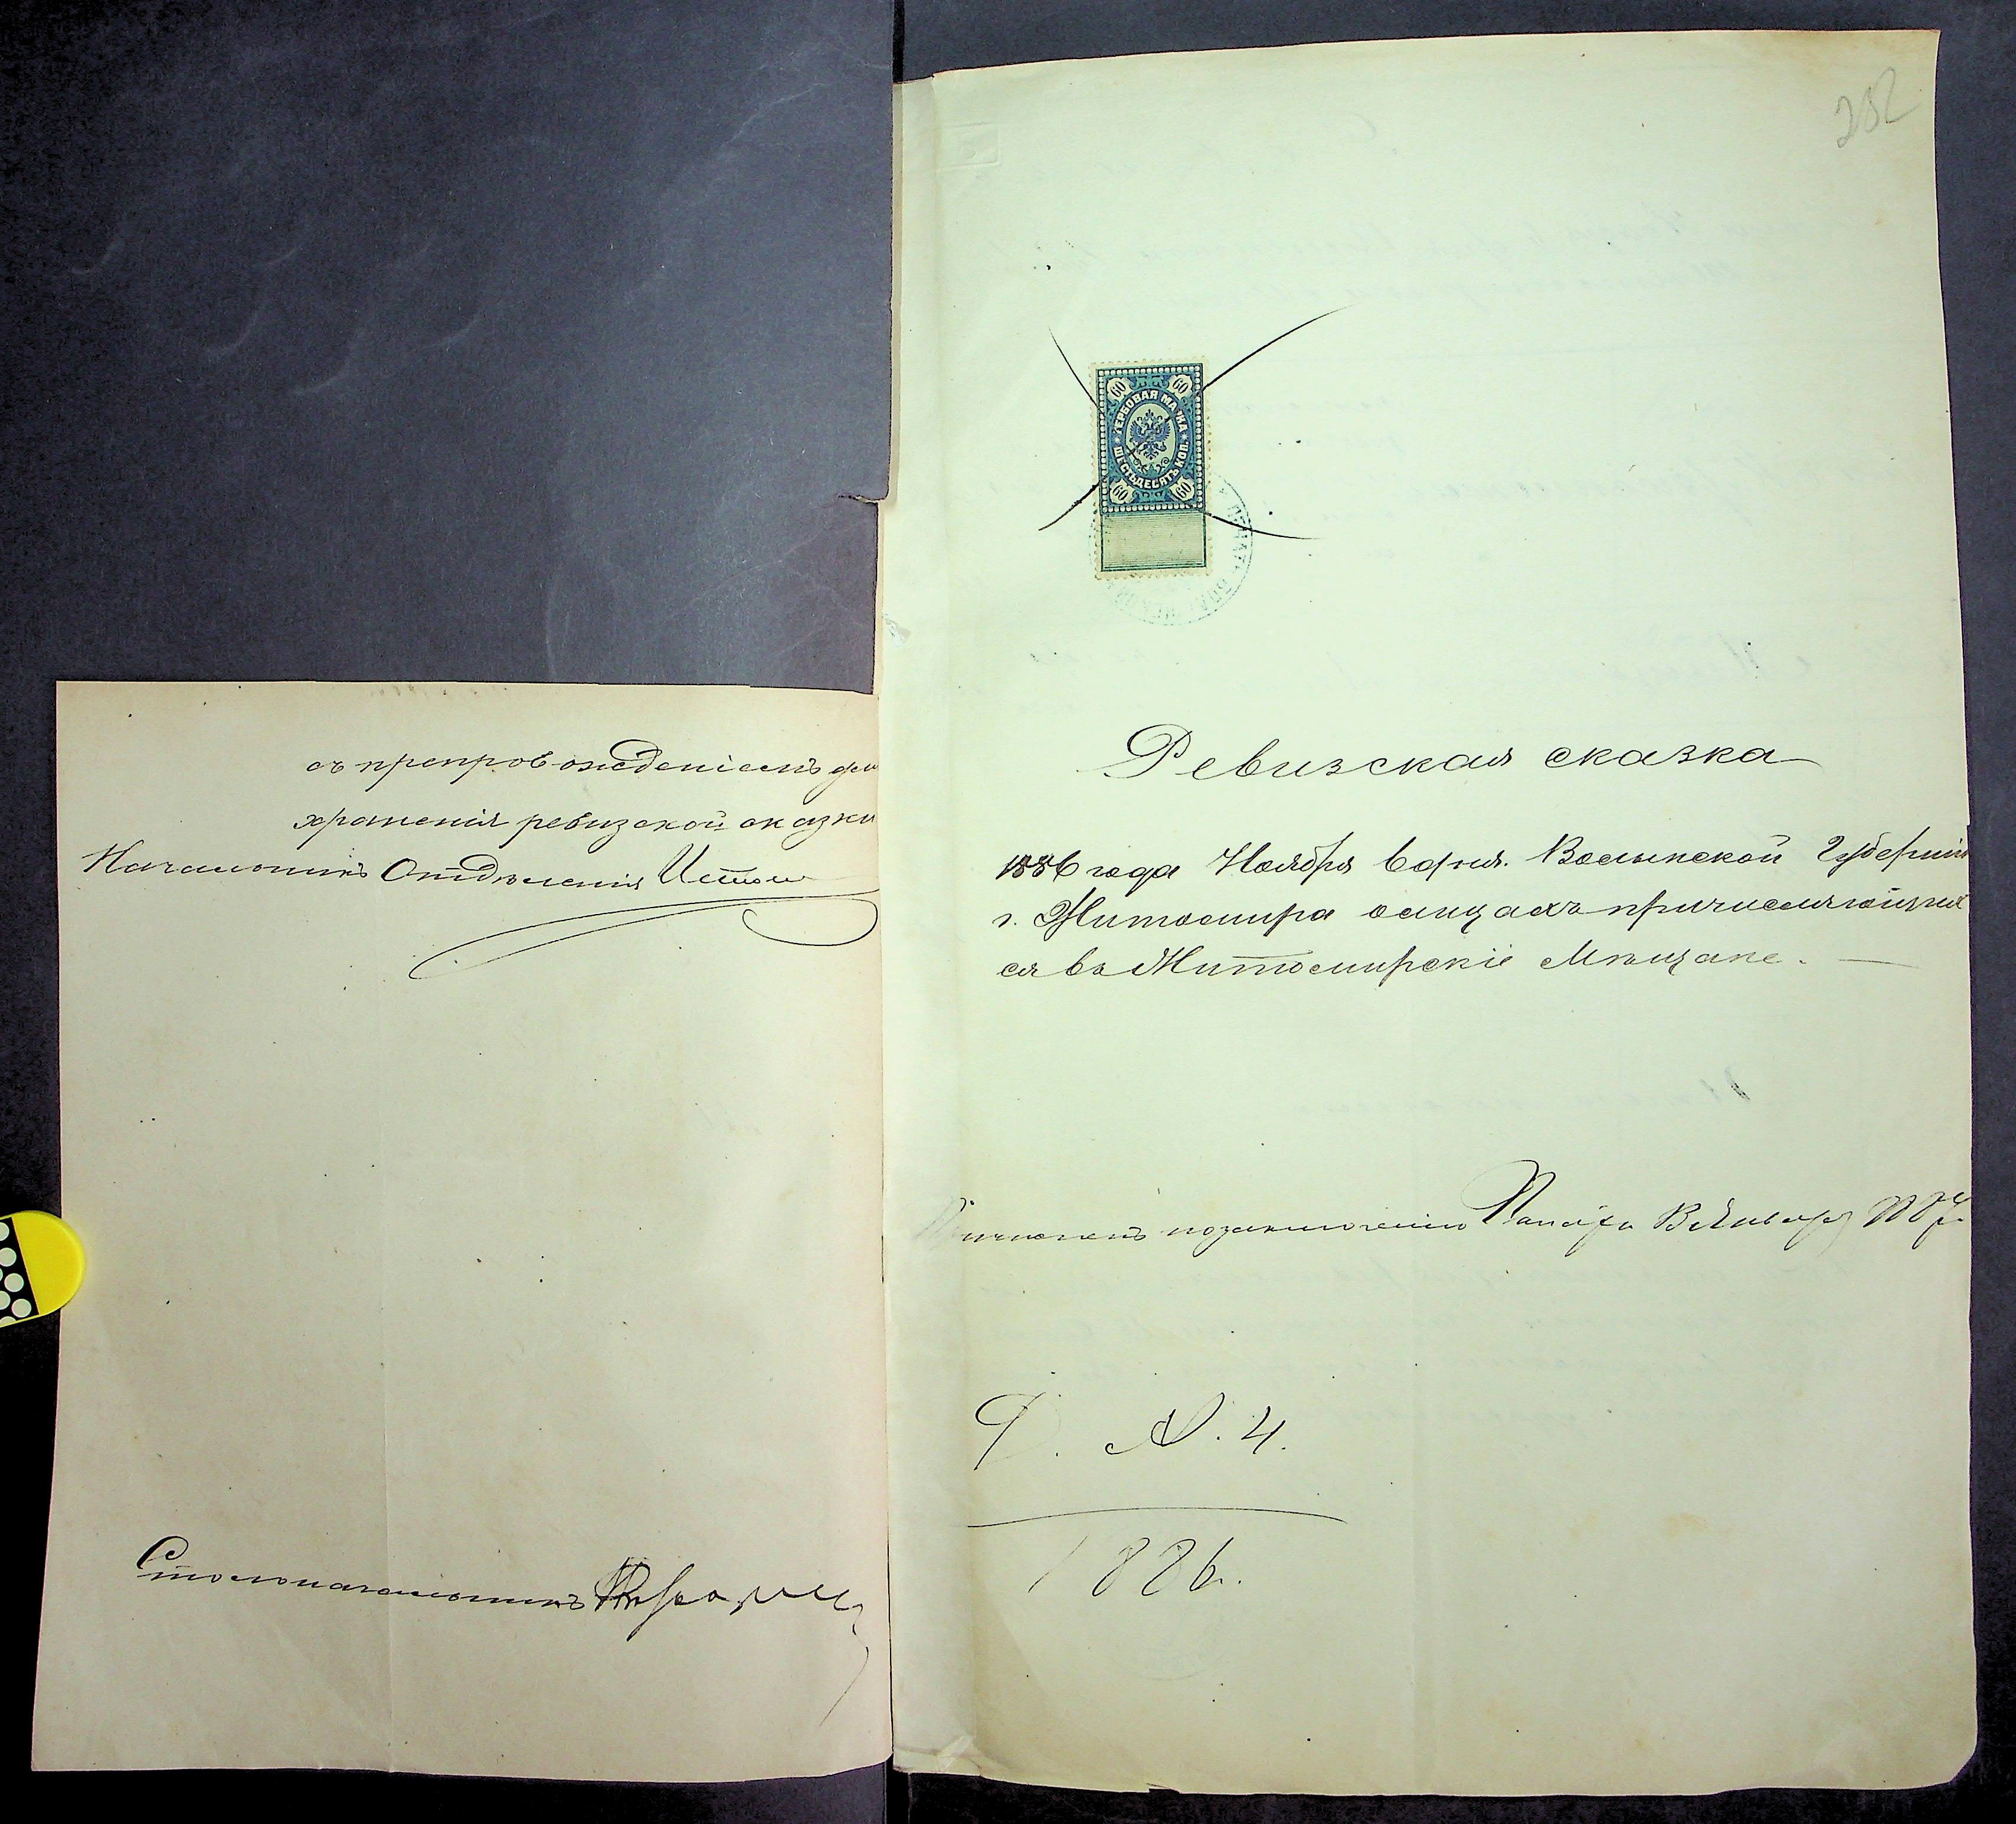 съ препровожденіемъ для
храненія ревизской сказки
Начальникъ Отдѣленія
Столоначальникъ
282
60 60
ГЕРБОВАЯ МАРКА
ШЕСТЬДЕСЯТЪ КОП.
60 60
Ревизская сказка
1886 года Ноября 6 дня. Волынской Губерніи
г. Житомира о лицахъ причисляющих
ся въ Житомирскіе Мѣщане.
по заключенію Палаты Января
Д. №. 4.
1886.